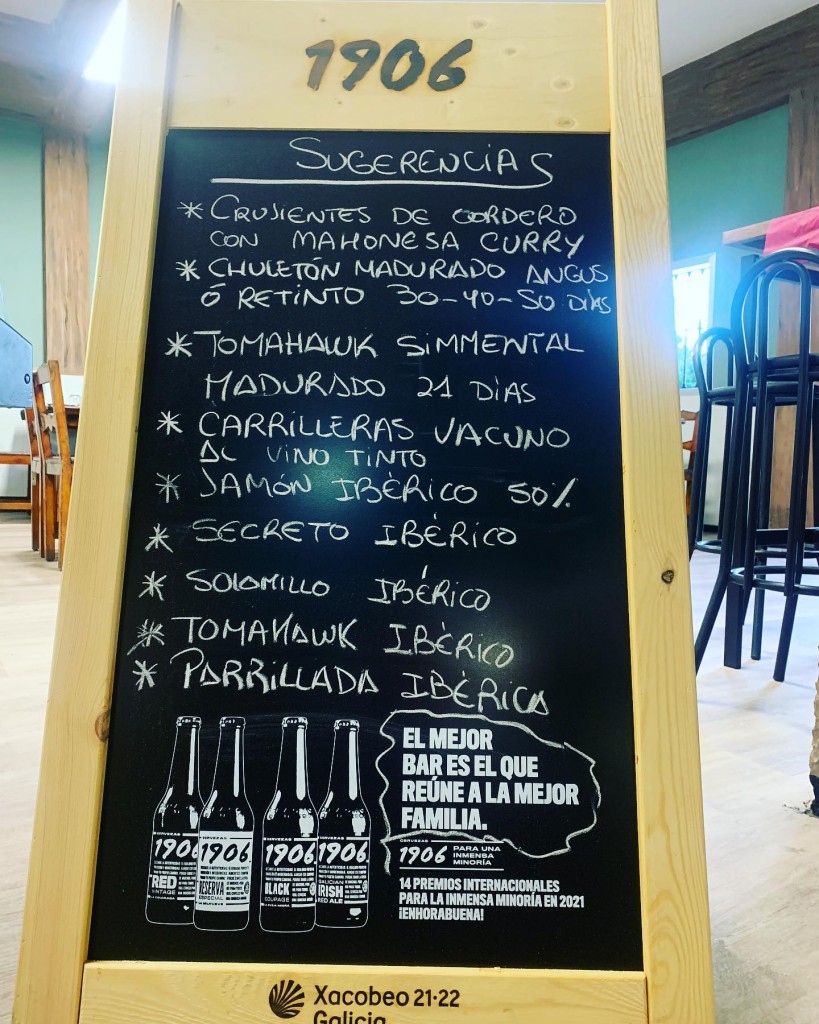 1906
SUGERENCIAS
* CRUJIENTES DE CORDERO
CON MAHONESA CURRY
* CHULETÓN MADURADO ANGUS
Ó RETINTO 30-40-50 DÍAS
* TOMAHAWK SIMMENTAL
MADURADO 21 DÍAS
* CARRILLERAS VACUNO
AL VINO TINTO
* JAMÓN IBÉRICO 50%
* SECRETO IBÉRICO
* SOLOMILLO IBÉRICO
* TOMAHAWK IBÉRICO
* PARRILLADA IBÉRICA
EL MEJOR
BAR ES EL QUE
REÚNE A LA MEJOR
FAMILIA.
CERVEZAS
1906
PARA UNA
INMENSA
MINORÍA
14 PREMIOS INTERNACIONALES
PARA LA INMENSA MINORÍA EN 2021
¡ENHORABUENA!
CERVEZAS
1906
RED
VINTAGE
LA COLORADA
CERVEZAS
1906
RESERVA
ESPECIAL
CERVEZAS
1906
BLACK
COUPAGE
1906
GALICIAN
IRISH
RED ALE
Xacobeo 21·22
Galicia